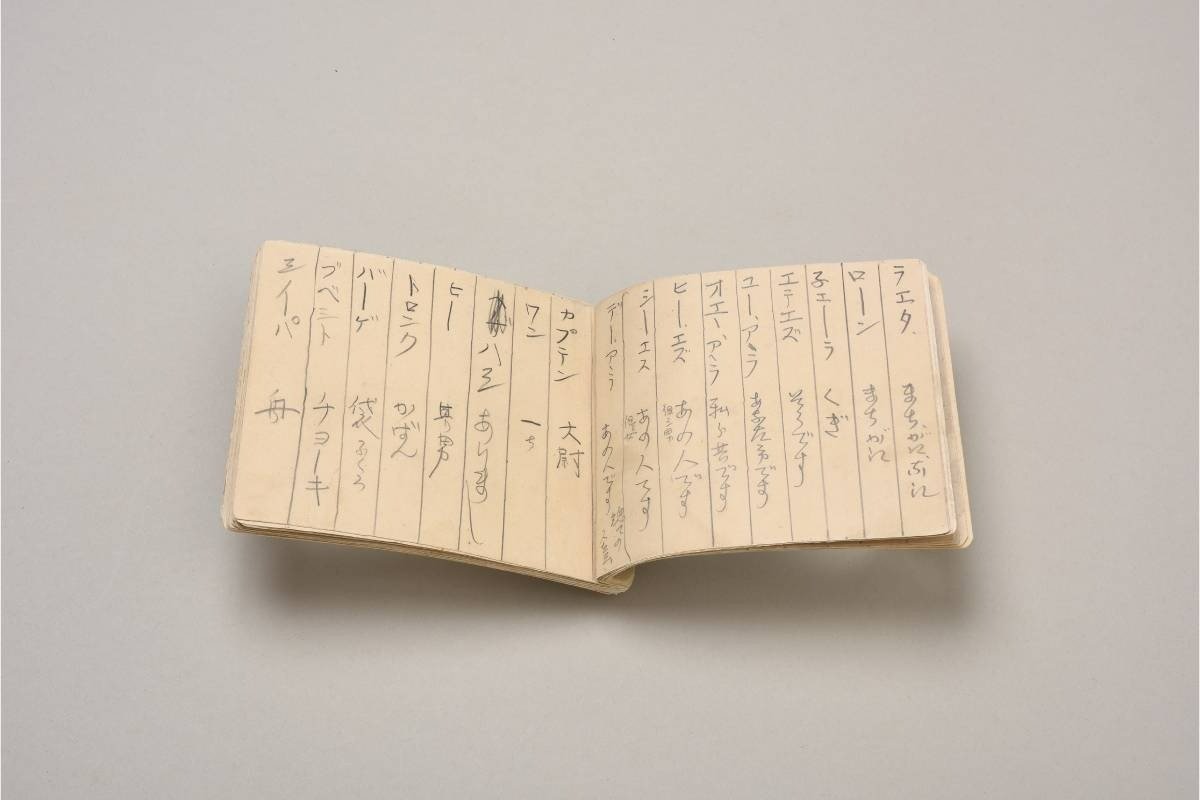 ラエタ まちがい高い
ローン まちがい
子エーラ くぎ
エテエズ そうです
ユー、アラ あなた方です
オエー、アラ 私共です
ヒー、エズ あの人です
シーエス あの人です
デー、アラ あの人です
カプテン 大尉
ワン 一ち
ハヱ あります
ヒー 男
トロンク かばん
バーゲ 袋 ふくろ
ブベスト チヨーキ
シイパ 舟